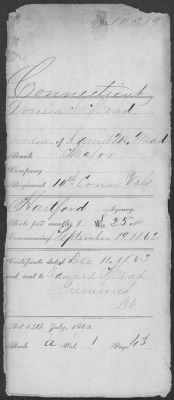 Connecticut
Louisa Mead
Widow of Daniel M. Mead
Rank Major
Company
Regiment 10th Conn Vols
Hartford Agency
Rate per month, $ 25
Commencing September 12 1862
Certificate dated Dec 11, 1863
and sent to Edward Mead
Greenwich
Ct
Act 14th July, 1862
Book A Vol. 1 Page 43